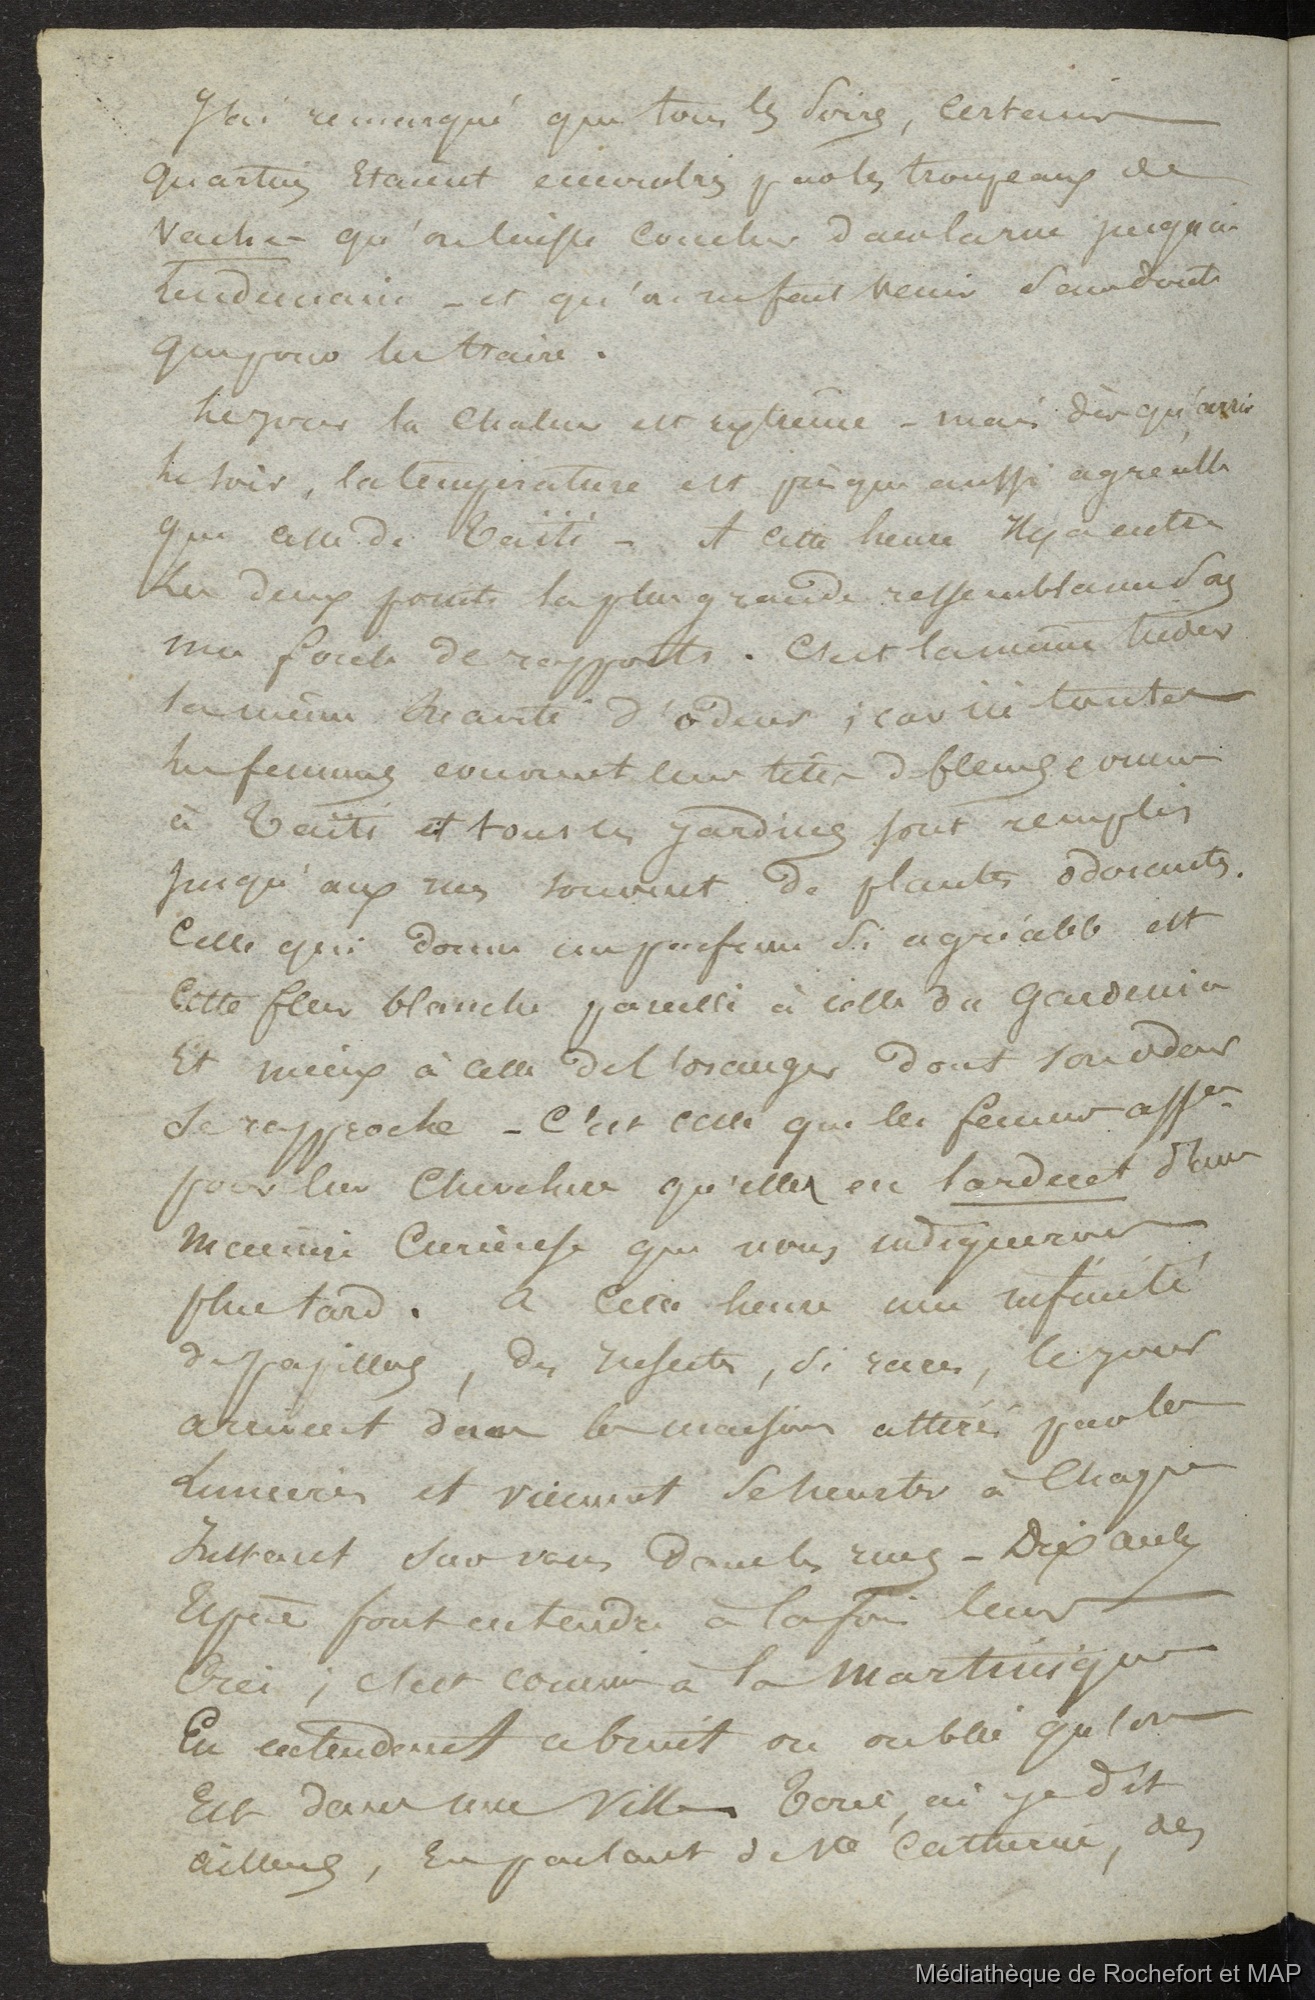 J'ai remarqué que tous les soirs, certains
quartiers étaient encombrés par les troupeaux de
vaches qu'on laisse coucher dans la rue jusqu'au
lendemain - et qu'on ne fait venir sans doute
que pour les traire.
Le jour la chaleur est extrême - mais dès qu'arrive
le soir, la température est presque aussi agréable
que celle de Taïti - A cette heure Il y a entre
les deux points la plus grande ressemblance sous
une foule de rapports. C'est la même tiédeur
la même suavité d'odeur ; car ici toutes
les femmes couvrent leurs têtes de fleurs comme
à Taïti et tous les jardins sont remplis
jusqu'aux rues souvent de plantes odorantes.
Celle qui donne un parfum si agréable est
cette fleur blanche pareille à celle du Gardenia
Et mieux à celle de l'oranger dont son odeur
se rapproche - C'est celle que les femmes
pour leur chevelure qu'elles en lardent d'une
manière curieuse que nous indiquerons
plus tard. A cette heure une infinité
de papillons, des Insectes, si rares, le jour
arrivent dans les maisons attirés par les
lumières et viennent se heurter à chaque
Instant sur vous dans les rues - Dix autres
Espèces font entendre à la fois leurs
Cris ; c'est comme à la Martinique
En entendant ce bruit on oublie qu'on
Est dans une Ville Tout, ai je dit
ailleurs, En parlant de Ste Catherine, des
Médiathèque de Rochefort et MAP